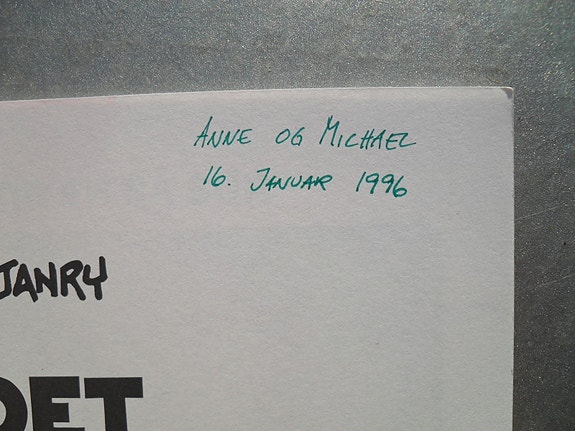 ANNE OG MICHAEL
16. JANUAR 1996
JANRY
DET